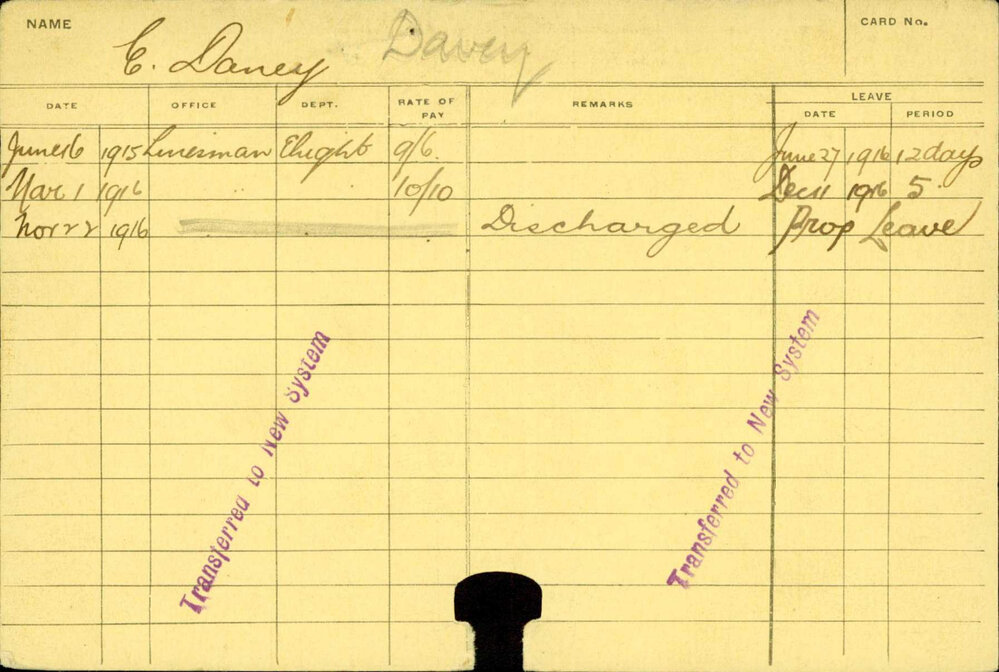 NAME
CARD No.
C. Daney Davey
DATE OFFICE DEPT. RATE OF PAY REMARKS LEAVE
DATE PERIOD
June 16 1915 Linesman Elight 9/6. June 27 1916 12 days
Mar 1 1916 10/10 Dec 11 1916 5.
Nov 22 1916 Discharged Prop Leave
Transferred to New System
Transferred to New System